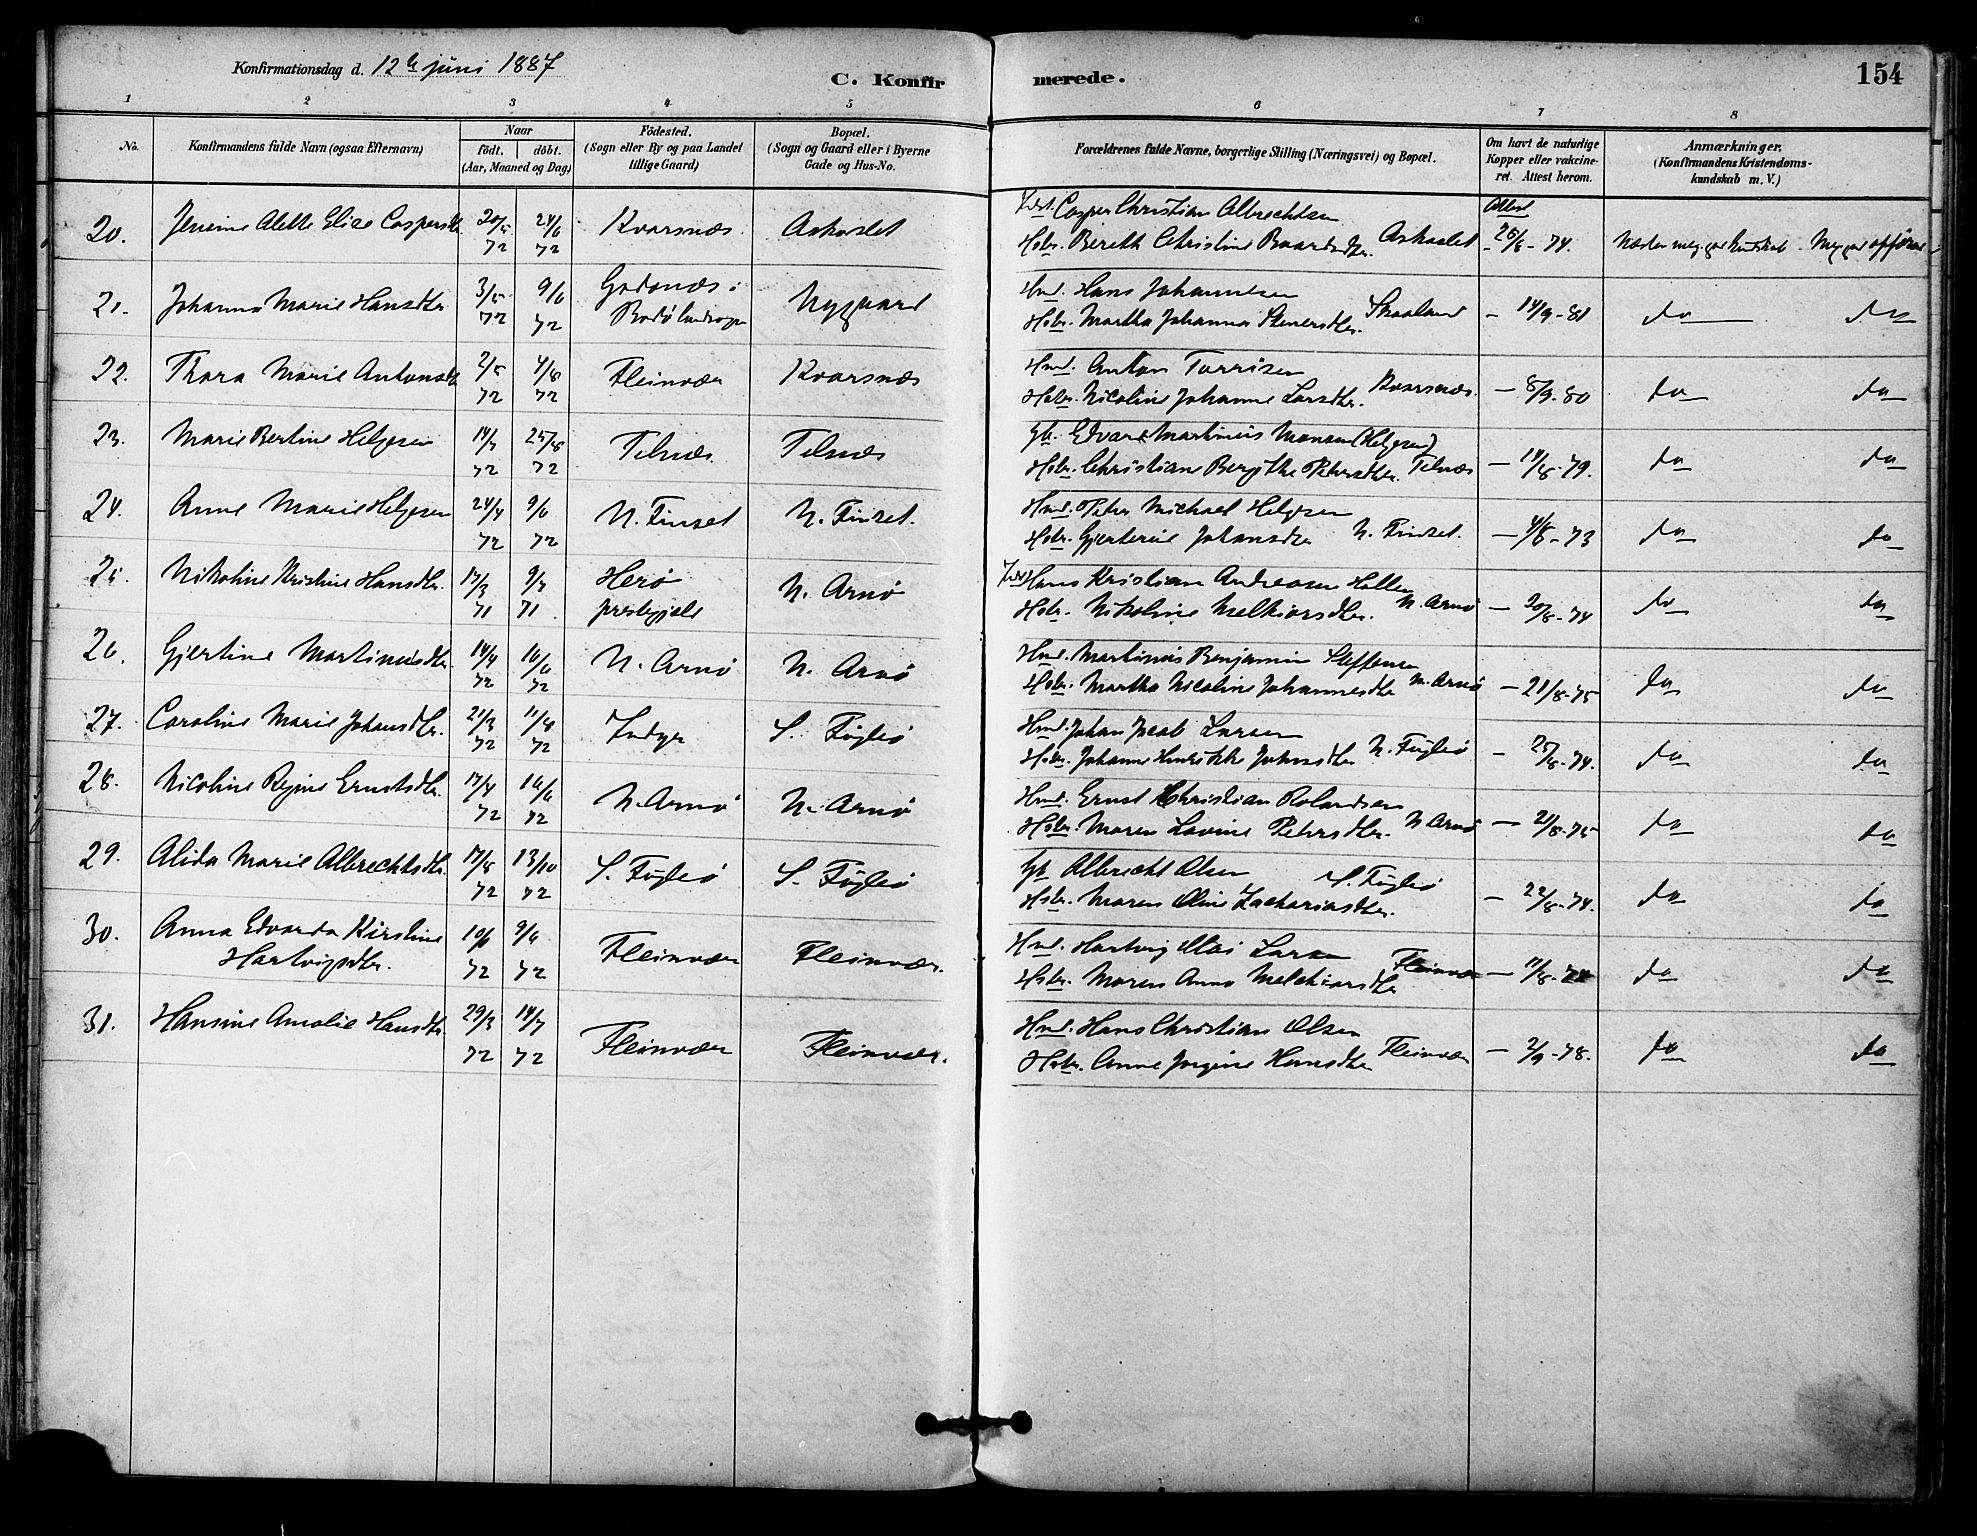 Konfirmationsdag d. 12te juni 1887
C. Konfirmerede.
154
1 2 3 4 5 6 7 8
No.
Konfirmandens fulde Navn (ogsaa Efternavn)
Naar
födt. döbt.
(Aar, Maaned og Dag)
Födested.
(Sogn eller By og paa Landet
tillige Gaard)
Bopæl.
(Sogn og Gaard eller i Byerne
Gade og Hus-No.
Forældrenes fulde Navne, borgerlige Stilling (Næringsvei) og Bopæl.
Om havt de naturlige
Kopper eller vakcine-
ret. Attest herom.
Anmærkninger.
(Konfirmandens Kristendoms-
kundskab m. V.)
20. Alette Elise Caspersdtr. 24/6 72 Kvarsnæs Askaslet
Casper Christian Albrechtsen
Hstr. Bereth Christine Askaslet Attest 25/8 - 74. Næsten meg. god Kundskab - Meg. god opførsel
21. Johanna Marie Hansdtr 3/5 72 9/6 72 Godønæs i Bodø landsogn Nygaard
Hmd. Hans Johannesen
Hstr. Martha Johanna Skaaland - 14/9 - 81 do do
22. Thora Marie Antonsdtr 2/5 72 4/8 72 Fleinvær Kvarsnæs
Hmd. Anton Torrisen
Hstr. Nicoline Johanne Larsdtr. Kvarsnæs. - 8/9 - 80 do do
23. Marie Bertine Helgesen 14/7 72 25/8 72 Telnæs. Telnæs
Gb. Edvard Martinius Monsen (Helgesen)
Hstr. Christiane Bergithe Petersdtr. Telnæs - 14/8 - 79. do do
24. Anne Marie Helgesen 24/4 72 9/6 72 N. Finset N. Finset.
Hmd. Peter Michael Helgesen
Hstr. Johansdtr N. Finset. - 4/8 - 73 do do
25. Nikoline Kristine Hansdtr. 17/3 71 9/7 71. Herø prestegjeld N. Arnø
Hans Kristian Andreasen
Hstr. Nikoline Melkiorsdtr. N. Arnø - 20/8 - 74 do do
26. Gjertine Martinusdtr. 14/4 72 16/6 72 N. Arnø N. Arnø
Hmd. Martinus Benjamin Steffensen
Hstr. Martha Nicoline Johannesdtr N. Arnø - 21/8 - 75 do do
27. Caroline Marie Johansdtr. 21/3 72 11/8 72 Indyr S. Fugleø
Hmd. Johan Larsen
Hstr. Johanna Henrikke N. Fugleø - 25/8 - 74. do do
28. Nicoline Regine Ernstsdtr. 17/4 72 16/6 72 N. Arnø N. Arnø
Hmd. Ernst Christian Rolandsen
Hstr. Maren Lovise Petersdtr. N. Arnø - 21/8 - 75 do do
29. Alida Marie Albrechtsdtr. 17/8 72 13/10 72 S. Fugleø S. Fugleø
Gb Albrecht Olsen S. Fugleø
Hstr. Maren Oline Zachariasdtr. - 22/8 - 74. do do
30. Anna Edvarda Kirstine
Hartvigsdtr. 72 72 Fleinvær Fleinvær.
Hmd. Hartvig Larsen
Hstr. Maren Anna Melchiorsdtr Fleinvær - 11/8 - do do
31. Hansine Amalie Hansdtr. 29/3 72 14/7 72 Fleinvær Fleinvær.
Hmd. Hans Christian Olsen
Hstr. Anne Jørgine Hansdtr Fleinvær - 2/9 - 78. do do